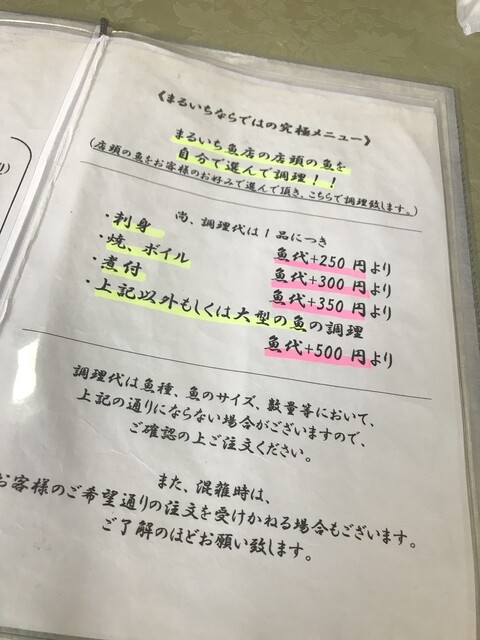 《まるいちならではの究極メニュー》
まるいち魚店の店頭の魚を
自分で選んで調理！！
(店頭の魚をお客様のお好みで選んで頂き、こちらで調理致します。)
尚、調理代は1品につき
・刺身 魚代+250円より
・焼、ボイル 魚代+300円より
・煮付 魚代+350円より
・上記以外もしくは大型の魚の調理
魚代+500円より
調理代は魚種、魚のサイズ、数量等において、
上記の通りにならない場合がございますので、
ご確認の上ご注文ください。
また、混雑時は、
お客様のご希望通りの注文を受けかねる場合もございます。
ご了解のほどお願い致します。